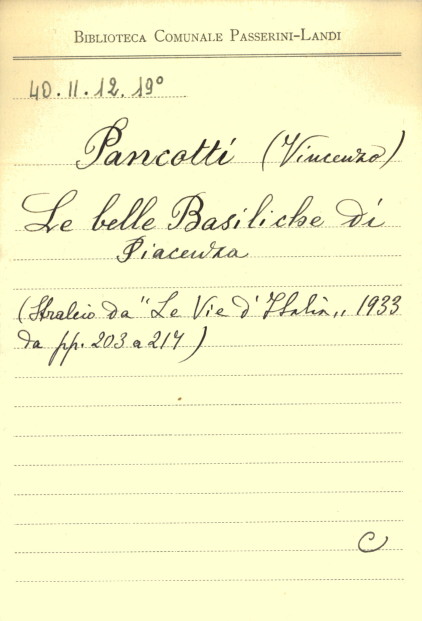 BIBLIOTECA COMUNALE PASSERINI-LANDI
40.II.12.19°
Pancotti (Vincenzo)
Le belle Basiliche di
Piacenza
(Stralcio da "Le Vie d'Italia„ 1933
da pp. 203 a 217)
C